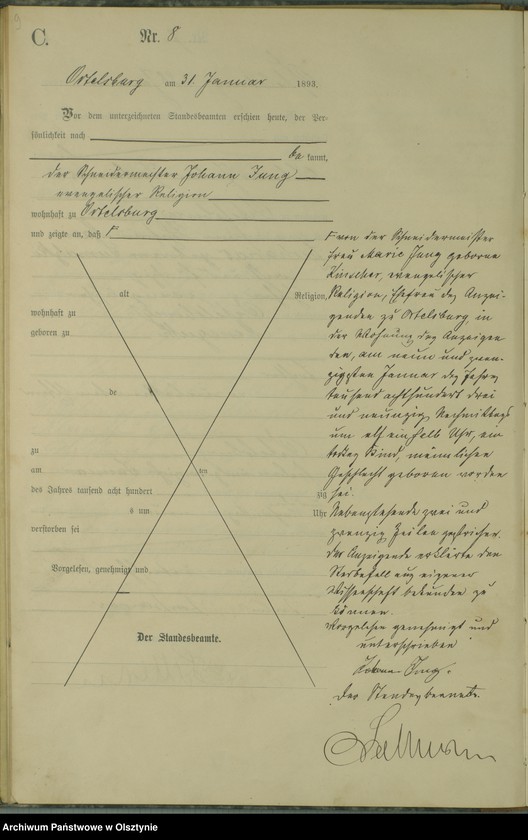 9
C.
Nr. 8
Ortelsburg am 31 Januar 1893.
Vor dem unterzeichneten Standesbeamten erschien heute, der Per-
sönlichkeit nach
be kannt,
der Schneidermeister Johann Jung
evangelischer Religion
wohnhaft zu Ortelsburg
und zeigte an, daß Γ
alt Religion,
wohnhaft zu
geboren zu
de
zu
am ten
des Jahres tausend acht hundert zig
s um Uhr
verstorben sei
Vorgelesen, genehmigt und
Der Standesbeamte.
Γ von der Schneidermeister
frau Marie Jung geborne
evangelischer
Religion, Ehefrau des Anzei-
genden zu Ortelsburg, in
der Wohnung des Anzeigen
den, am neun und zwan-
zigsten Januar des Jahres
tausend achthundert drei
und neunzig Nachmittags
um elf einhalb Uhr, ein
todtes Kind, männlichen
Geschlecht geboren worden
sei.
Nebenstehende zwei und
zwanzig Zeilen gestrichen.
Der Anzeigende erklärte den
Sterbefall aus eigener
Wissenschaft bekunden zu
können.
Vorgelesen genehmigt und
unterschrieben
Johann Jung.
Der Standesbeamte.
Archiwum Państwowe w Olsztynie